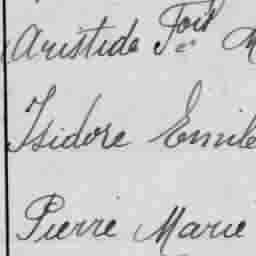 Aristide Fois M
Isidore Emile
Pierre Marie